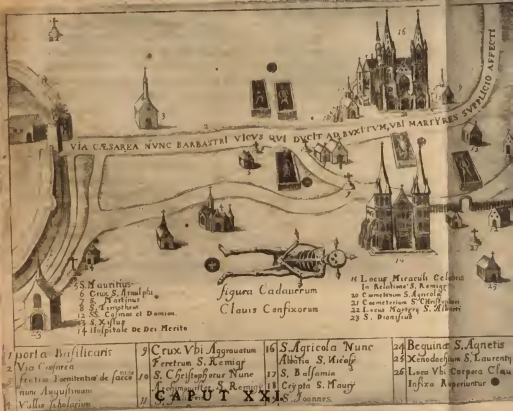 16
VIA CÆSAREA NUNC BARBASTRI VICUS QUI DUCIT AD BUXITUM, UBI MARTYRES SUPPLICIO AFFECTI
5 S. Mauritius
6 Crux S. Arnulphi
7 S. Martinus
8 S. Timotheus
12 SS. Cosmas et Damian.
13 S. Xistus
14 Hospitale De Dei Merito
figura Cadauerum
Clauis Confixorum
19 Locus Miraculi Celebris
In Relatione S. Remigÿ
20 Cœmeterium S. Agricolæ
21 Cœmeterium S. Christophori
22 Locus Martyrÿ S.
23 S. Dionisius
1 porta Basilicaris
2 Via Cæsarea
nunc Augustinianæ
Vallis Scholarium
9 Crux Vbi Aggrauatum
Feretrum S. Remigÿ
10 S. Christophorus Nunc
S. Remigÿ
11
16 S. Agricola Nunc
Abbatia S. Nicasÿ
17 S. Balsamia
18 Crypta S. Maurÿ
S. Joannes
24 Beguinæ S. Agnetis
25 Xenodochium S. Laurentÿ
26 Loca Vbi Corpora Clauis
Infixa Reperiuntur
CAPUT XXI